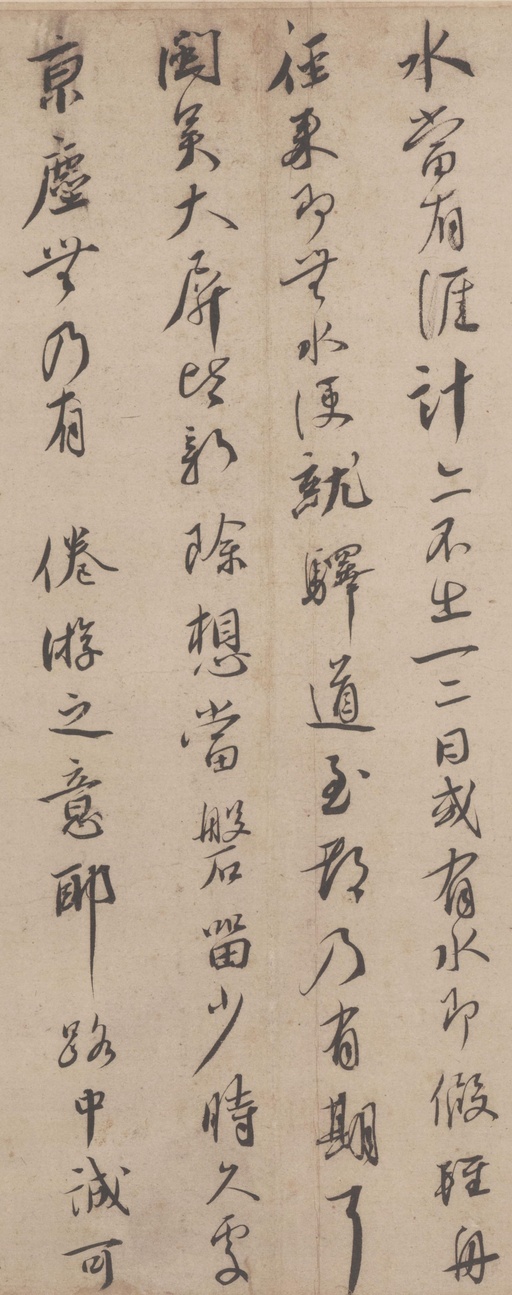 水當有涯計亦不出一二日或有水即假輕舟
徑來即無水便就驛道至都乃有期耳
閩吳大屏皆新除想當盤石留少時久處
京塵無乃有倦游之意耶路中誠可